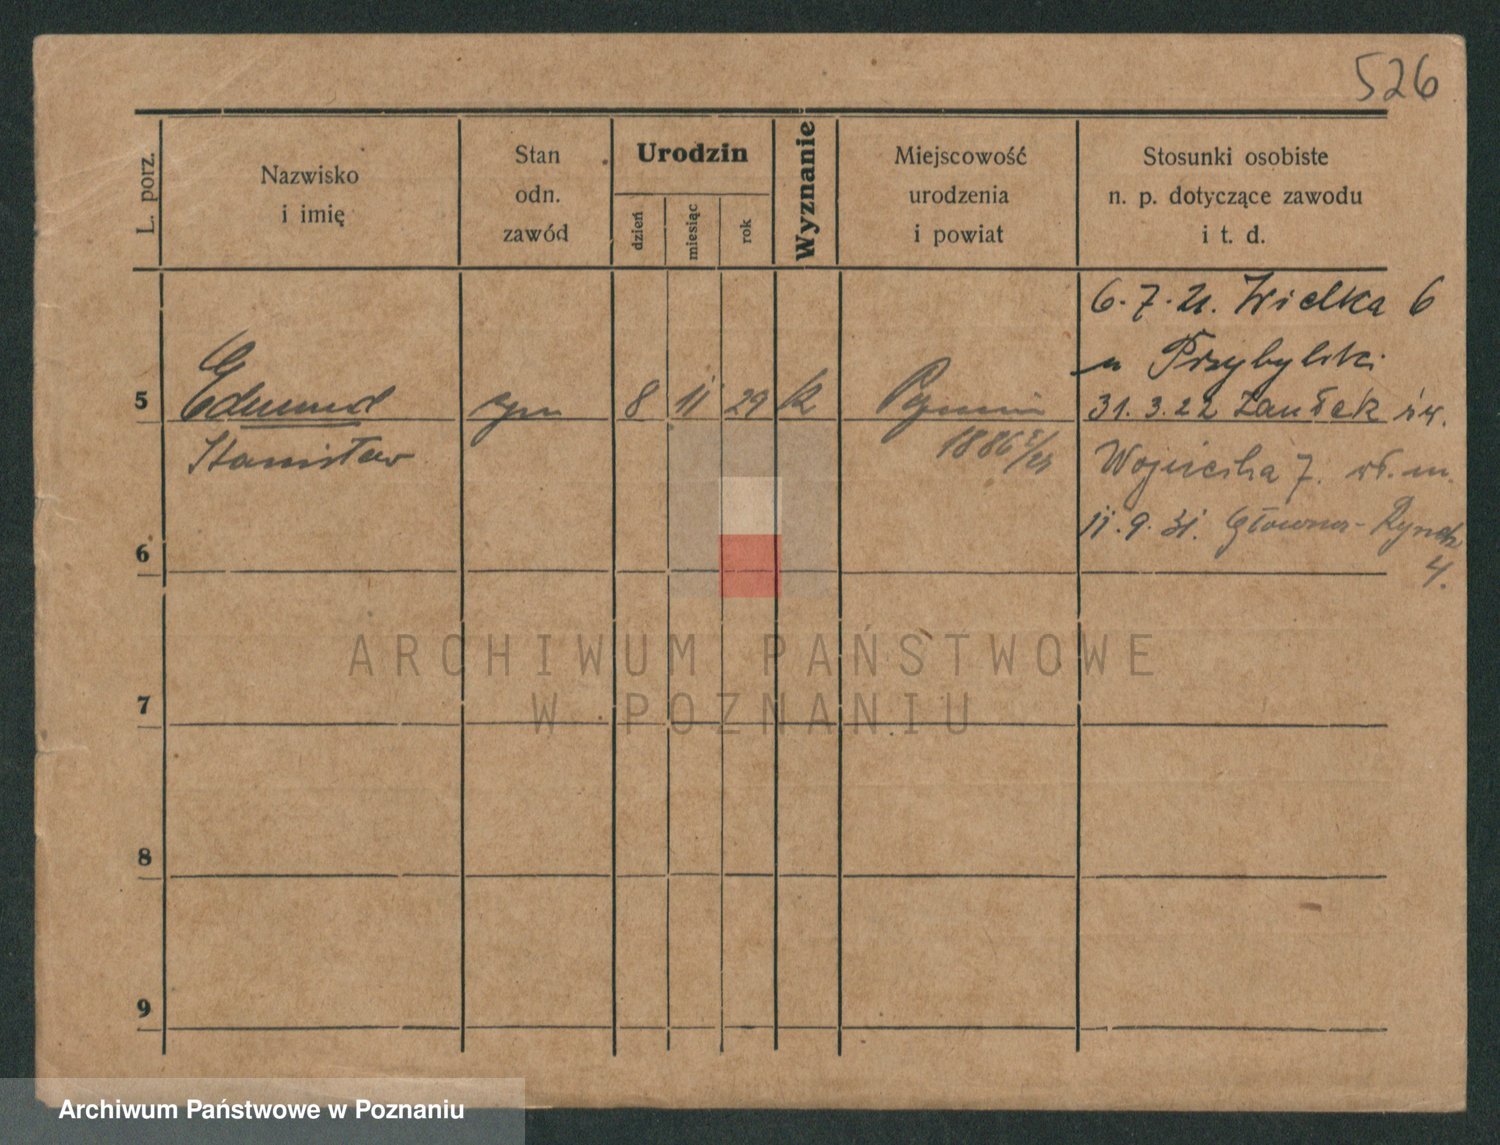 526
L. porz.
Nazwisko
i imię
Stan
odn.
zawód
Urodzin
dzień
miesiąc
rok
Wyznanie
Miejscowość
urodzenia
i powiat
Stosunki osobiste
n. p. dotyczące zawodu
i t. d.
6. 7. 21. Wielka 6
u Przybylski
5 Edmund syn 8 11 29 k
31. 3. 22 Zaułek św.
Stanisław
1886
Wojciecha 7. wł. m.
11. 9. 31. Główna - Rynek
4.
6
7
8
9
ARCHIWUM PAŃSTWOWE
W POZNANIU
Archiwum Państwowe w Poznaniu